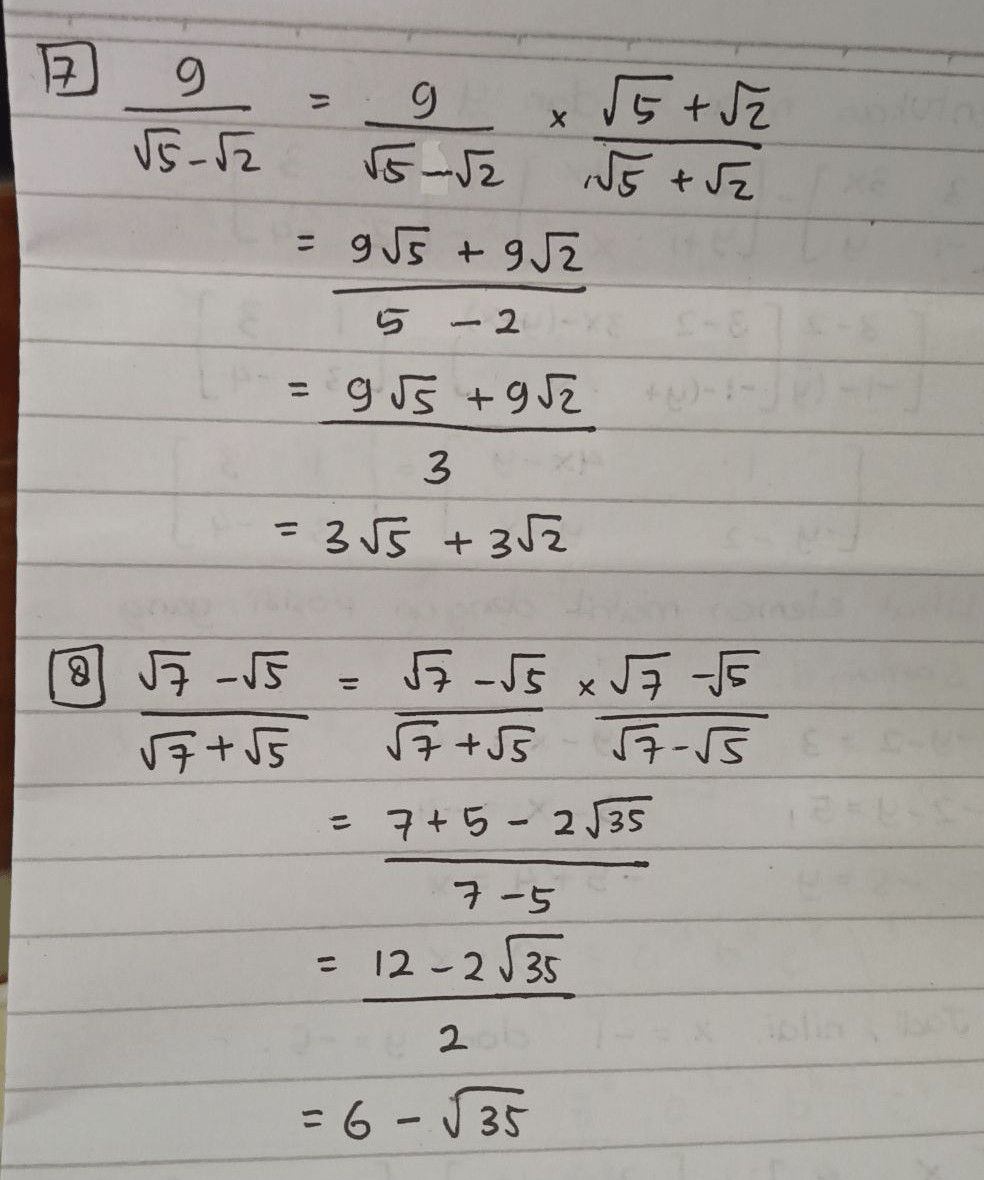 7  9/(√5-√2) = 9/(√5-√2) × (√5+√2)/(√5+√2)
= (9√5 + 9√2)/(5 - 2)
= (9√5 + 9√2)/3
= 3√5 + 3√2
8  (√7-√5)/(√7+√5) = (√7-√5)/(√7+√5) × (√7-√5)/(√7-√5)
= (7+5-2√35)/(7-5)
= (12-2√35)/2
= 6 - √35